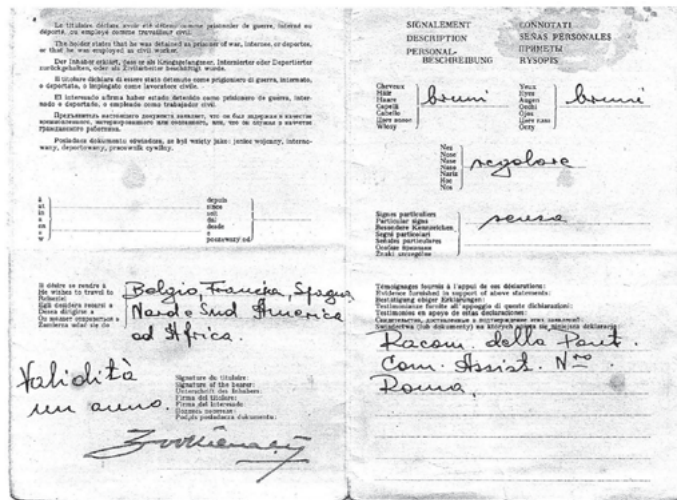 4
Le titulaire déclare avoir été détenu comme prisonnier de guerre, interné ou
déporté, ou employé comme travailleur civil.
The holder states that he was detained as prisoner of war, internee, or deportee,
or that he was employed as civil worker.
Der Inhaber erklärt, dass er als Kriegsgefangener, Internierter oder Deportierter
zurückgehalten, oder als Zivilarbeiter beschäftigt wurde.
Il titolare dichiara di essere stato detenuto come prigioniero di guerra, internato,
o deportato, o impiegato come lavoratore civile.
El interesado afirma haber estado detenido como prisionero de guerra, inter-
nado o deportado, o empleado como trabajador civil.
Предъявитель настоящего документа заявляет, что он был задержан в качестве
военнопленного, интернированного или сосланного, или, что он служил в качестве
гражданского работника.
Posiadacz dokumentu oświadcza, że był wzięty jako: jeniec wojenny, interno-
wany, deportowany, pracownik cywilny.
à
at
in
a
en
w
depuis
since
seit
dal
desde
poczawszy od
Il désire se rendre à
He wishes to travel to
Egli desidera recarsi a
Desea dirigirse a
Он желает отправиться в
Zamierza udać się do
Belgio, Francia, Spagna,
Nord e Sud America
ad Africa.
Validità
un anno.
Signature du titulaire:
Signature of the bearer:
Unterschrift des Inhabers:
Firma del titolare:
Firma del interesado:
Подпись
Podpis posiadacza dokumentu:
SIGNALEMENT
DESCRIPTION
PERSONAL-
BESCHREIBUNG
CONNOTATI
SEÑAS PERSONALES
ПРИМЕТЫ
RYSOPIS
Cheveux
Hair
Haare
Capelli
Cabello
Цвет волос
Włosy
bruni
Yeux
Eyes
Augen
Occhi
Ojos
Цвет глаз
Oczy
bruni
Nez
Nose
Nase
Naso
Nariz
Нос
Nos
regolare
Signes particuliers
Particular signs
Besondere Kennzeichen
Segni particolari
Señales particulares
Особые приметы
Znaki szczególne
senza
Témoignages fournis à l'appui de ces déclarations:
Evidence furnished in support of above statements:
Bestätigung obiger Erklärungen:
Testimonianze fornite all'appoggio di queste dichiarazioni:
Testimonios en apoyo de estas declaraciones:
Świadectwa (lub dokumenty) na których opiera się niniejsza deklaracja
Racom. della Pont.
Com. Assist. N
Roma,